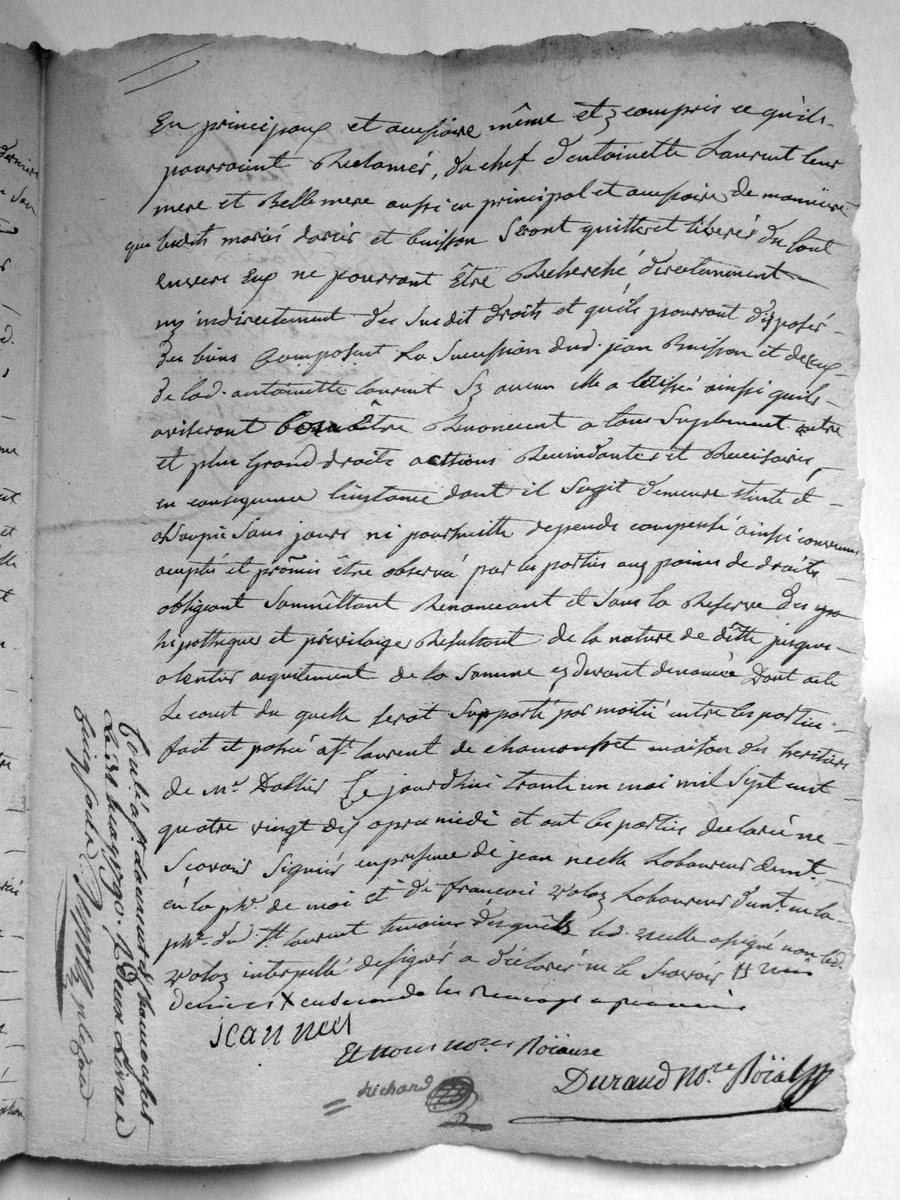 En principaux et accessoire même et y compris ce qu'ils
pourraint Reclamér, du chef d'entoinette Laurent leur
mere et Belle mere aussi en principal et accessoire de maniere
que lesdits mariés darcis et buisson seront quittes et liberés du tout
envers Eux ne pourront être Recherché directement
ny indirectement des susdit droits et qu'ils pourront disposér
des biens Composent La succession dud. jean Buisson et de
de lad. antoinette laurent sy aucun elle a laissé ainsi quils
aviseront être Renoncent a tous suplement autre
et plus Grand droits actions Rescindantes et Rescisoires
en consequence l'instance dont il sagit demeure éteinte et
assoupie sans jours ni poursuitte depends compensé ainsi convenus
acceptés et promis être observé par les parties aux peines de droits
obligeant soumêttant Renonceant et sous la Reserve des
hipotheques et privilaige Resultant de la nature de dêtte jusques
alentier aquitement de la somme cy devant denomée Dont acte
Le coust du quelle serat supporté par moitié entre les parties
fait et passé a st. laurent de chamousset maison des heritiers
de Mr. Le jourdhui trante un mai mil sept cent
quatre vingt dix apres midi et ont les parties declaré ne
scavoir signér en presence de jean neelle Laboureur demt.
en la ph. de et de françois Laboureur demt. en la
ph. du st laurent temoins desquels led. neelle a signé non led.
interpellé de signér a déclaré ne le scavoir
jean neel
Et nous nores. Roïaux
Durand Nore. Roïal
Richard
Conlé a st. laurent de chamousset
Le mai 1790. f Deux Livres